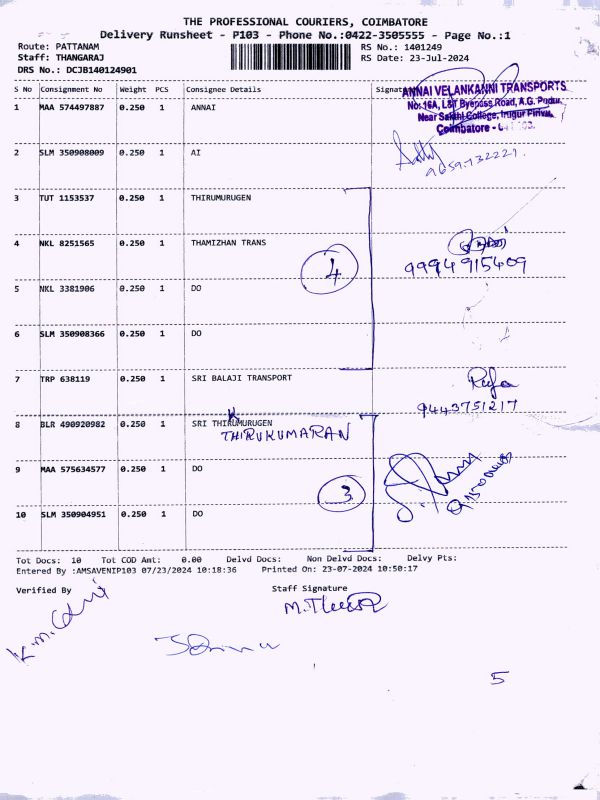 THE PROFESSIONAL COURIERS, COIMBATORE
Delivery Runsheet - P103 - Phone No.:0422-3505555 - Page No.:1
Route: PATTANAM
RS No.: 1401249
Staff: THANGARAJ
RS Date: 23-Jul-2024
DRS No.: DCJB140124901
S No Consignment No Weight PCS Consignee Details Signat
ANNAI VELANKANNI TRANSPORTS
No: 16A, L&T Byepass Road, A.G. Pudur,
Near Sakthi College, Irugur Pirivu,
Coimbatore -
1 MAA 574497887 0.250 1 ANNAI
2 SLM 350908009 0.250 1 AI
9659732221.
3 TUT 1153537 0.250 1 THIRUMURUGEN
4 NKL 8251565 0.250 1 THAMIZHAN TRANS
4
9994915409
5 NKL 3381906 0.250 1 DO
6 SLM 350908366 0.250 1 DO
7 TRP 638119 0.250 1 SRI BALAJI TRANSPORT
9443751217
8 BLR 490920982 0.250 1 SRI THIRUMURUGEN
THIRUKUMARAN
9 MAA 575634577 0.250 1 DO
3
10 SLM 350904951 0.250 1 DO
Tot Docs: 10 Tot COD Amt: 0.00 Delvd Docs: Non Delvd Docs: Delvy Pts:
Entered By :AMSAVENIP103 07/23/2024 10:18:36 Printed On: 23-07-2024 10:50:17
Verified By
Staff Signature
5